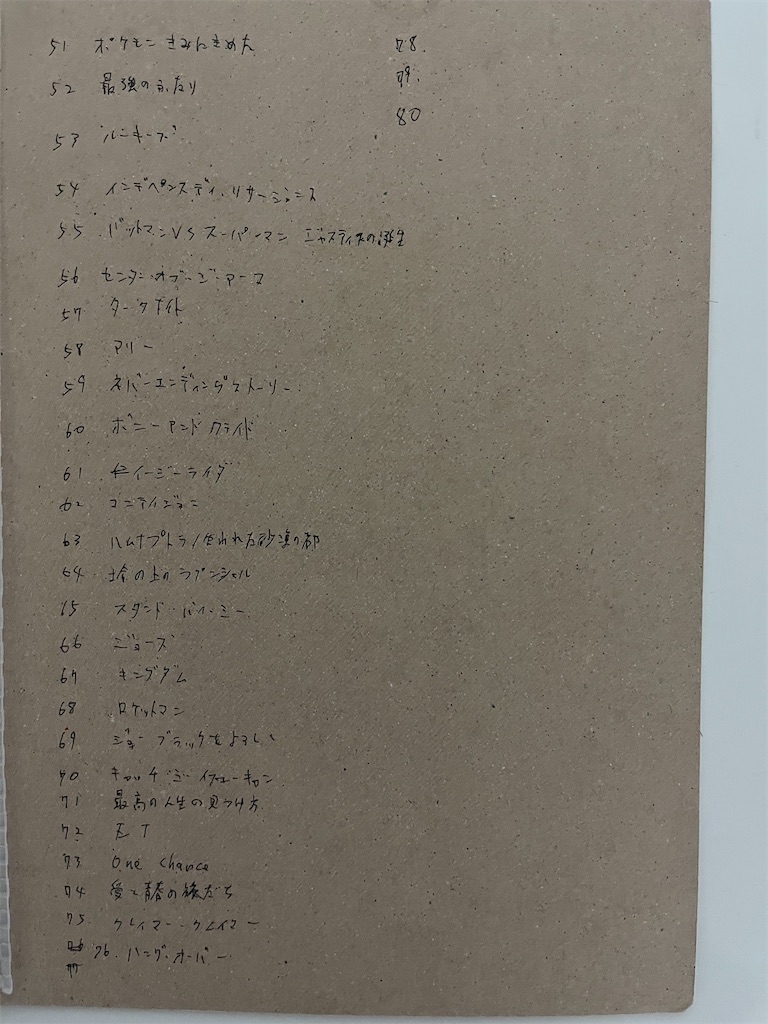 51 ポケモン きみにきめた
52 最強のふたり
53 ルーキーズ
54 インデペンスデイ・リサージェンス
55 バットマンVSスーパーマン ジャスティスの誕生
56 センター・オブ・ジ・アース
57 ダークナイト
58 アリー
59 ネバーエンディングストーリー
60 ボニーアンドクライド
61 イージーライダ
62 コンテイジョン
63 ハムナプトラ/失われた砂漠の都
64 塔の上のラプンシェル
65 スタンド・バイ・ミー
66 ジョーズ
67 キングダム
68 ロケットマン
69 ジョーブラックをよろしく
70 キャッチ・ミー・イフユーキャン
71 最高の人生の見つけ方
72 E T
73 One chance
74 愛と青春の旅だち
75 クレイマー・クレイマー
76. ハング・オーバー
77
78.
79.
80